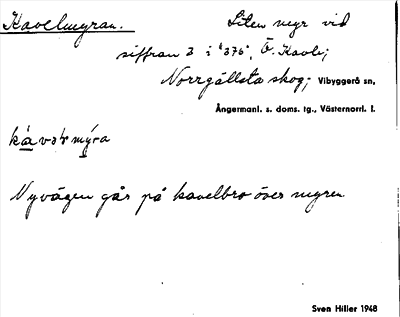 Kavelmyran. Liten myr vid
siffran 3 i "375", Ö. Kavle;
Norrgällsta skog; Vibyggerå sn,
Ångermanl. s. doms. tg., Västernorrl. l.
mýra
Nyvägen går på kavelbro över myren
Sven Hiller 1948